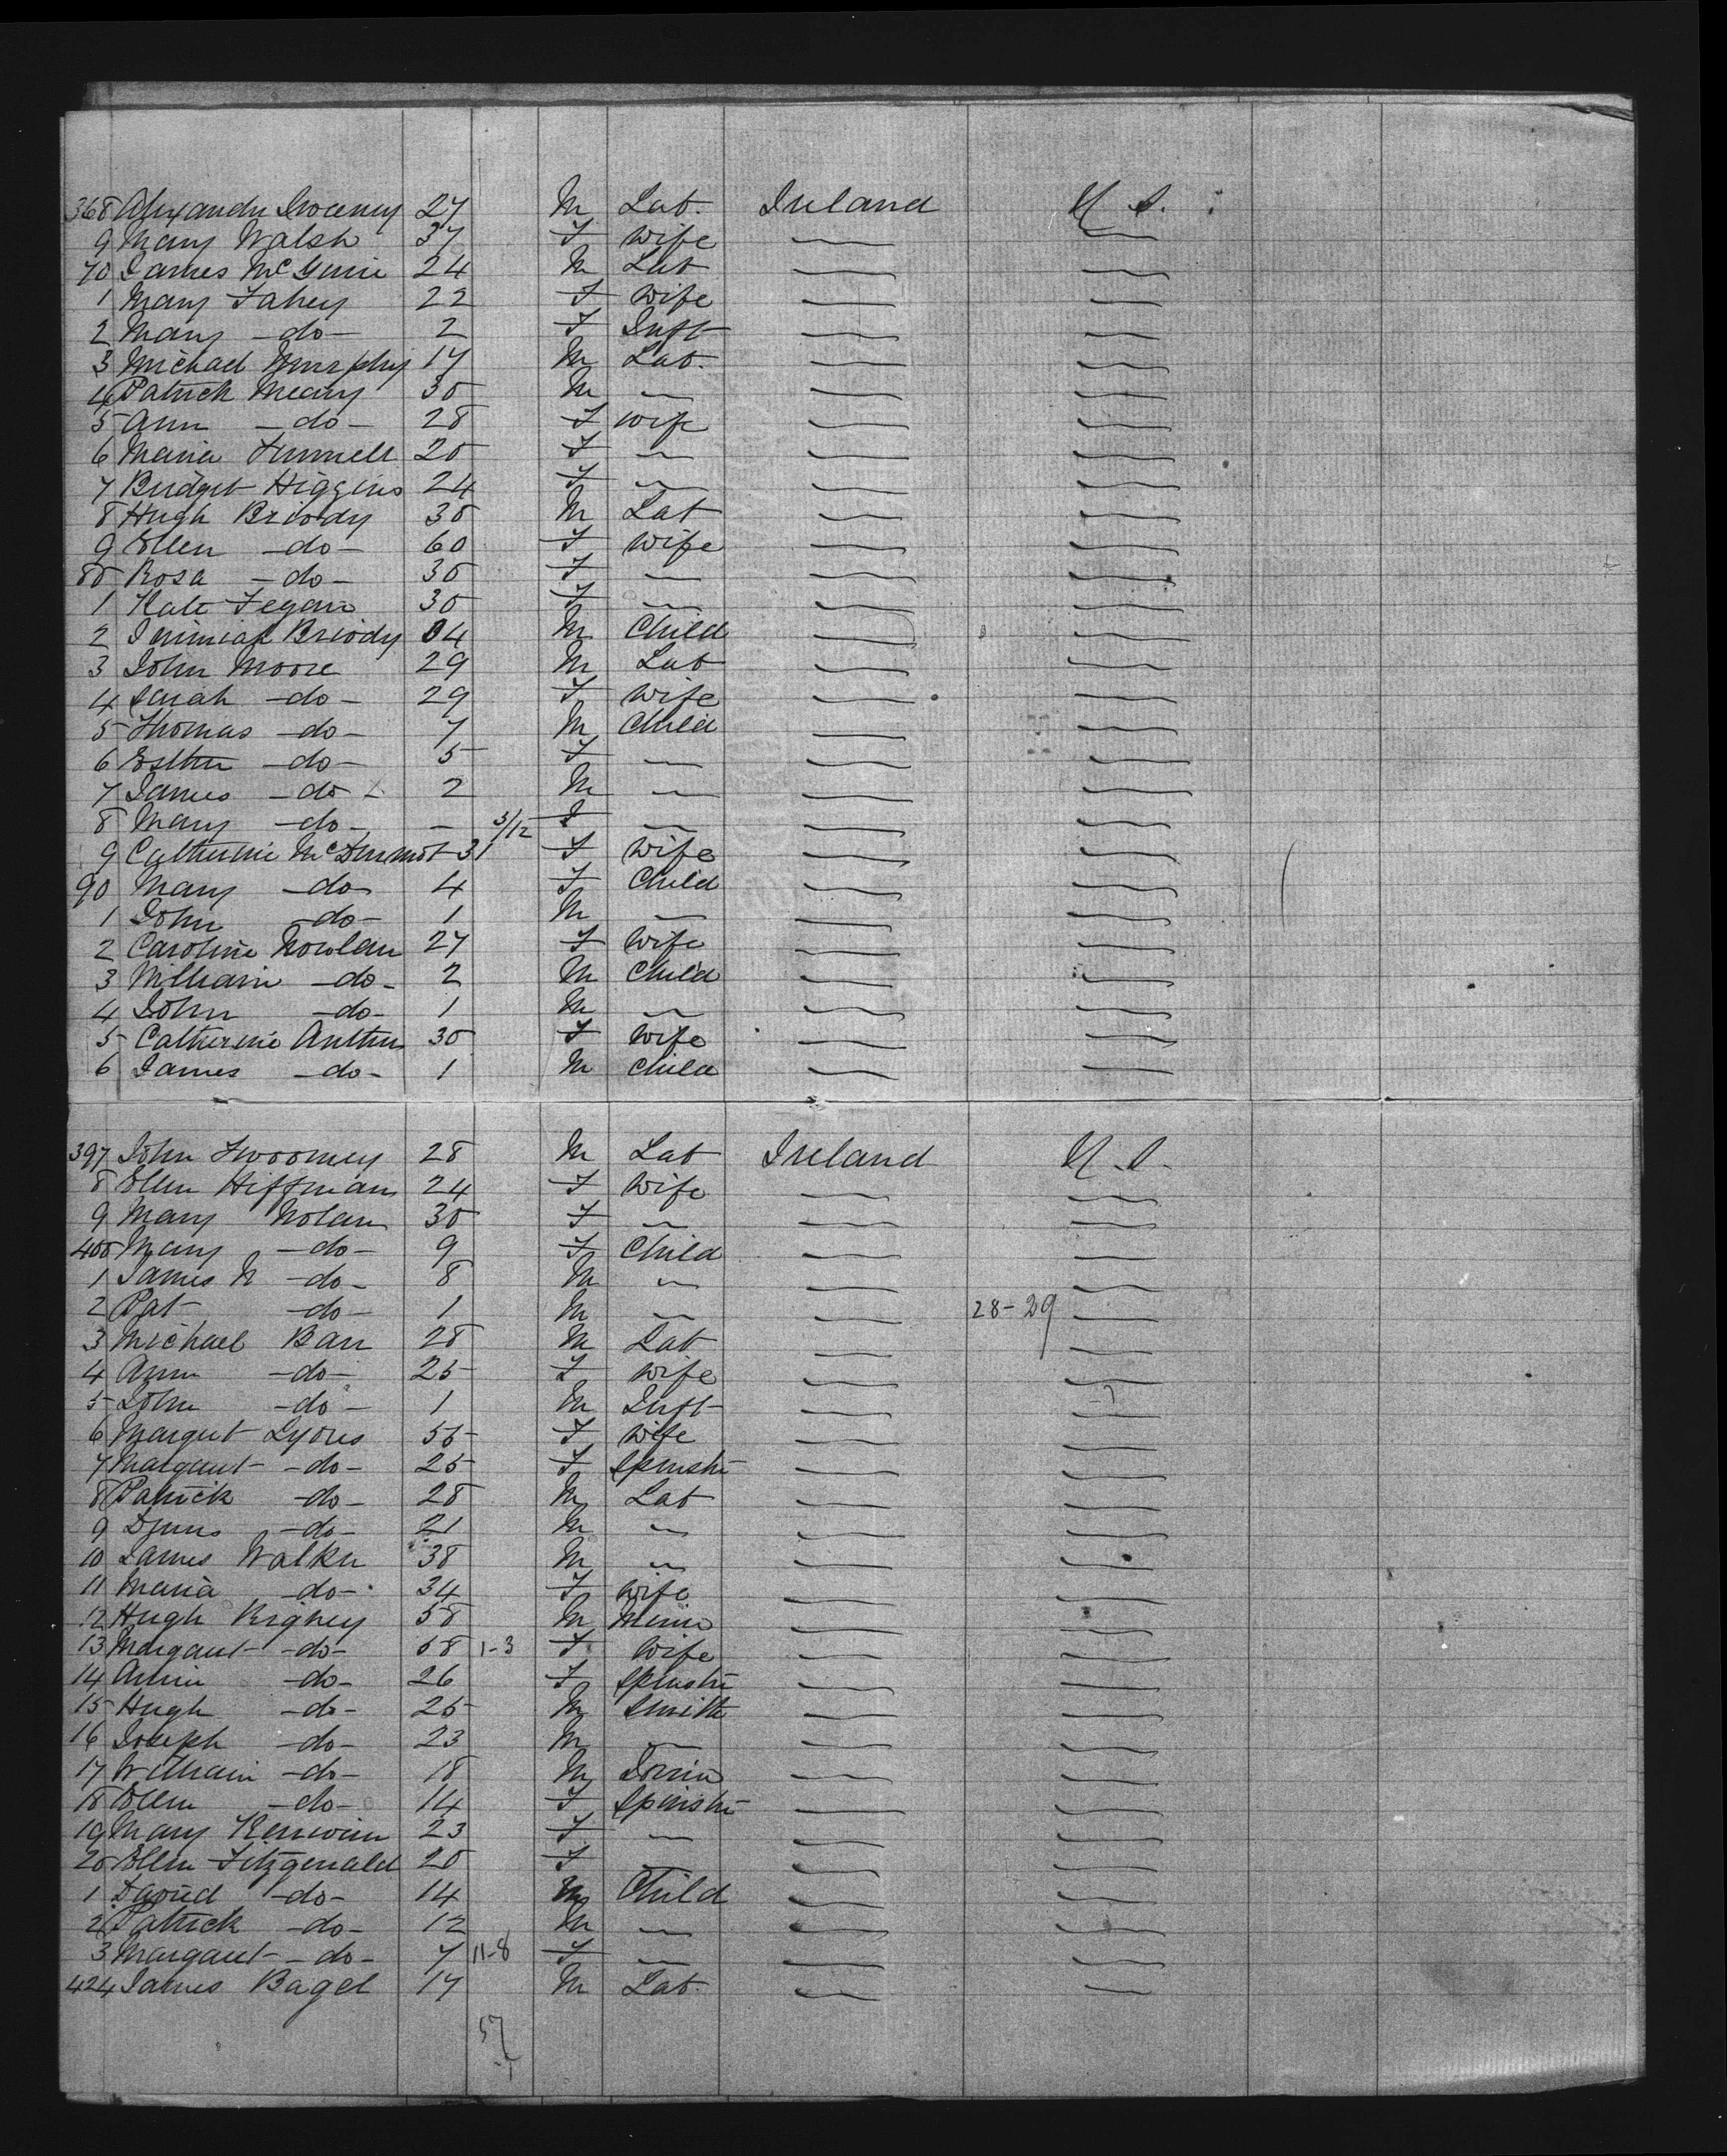 368 Alexander Sweeney 27 M Lab. Ireland U.S.
9 Mary Walsh 37 F Wife
70 James McGuire 24 M Lab
1 Mary Fahey 22 F Wife
2 Mary - do - 2 F Inft
3 Michael Murphy 17 M Lab.
4 Patrick Meany 30 M
5 Ann - do - 28 F Wife
6 Maria 20 F
7 Bridget Higgins 24 F
8 Hugh Briody 30 M Lab
9 Ellen - do - 60 F Wife
80 Rosa - do - 30 F
1 Kate Fegan 30 F
2 Jerimiah Briody 04 M Child
3 John Moore 29 M Lab
4 Sarah - do - 29 F Wife
5 Thomas - do - 7 M Child
6 Esther - do - 5 F
7 James - do - 2 M
8 Mary - do - - 3/12 F
9 Catherine McDermot 31 F Wife
90 Mary - do - 4 F Child
1 John - do - 1 M
2 Caroline Nowlan 27 F Wife
3 William - do - 2 M Child
4 John - do - 1 M
5 Catherine 30 F Wife
6 James - do - 1 M Child
397 John Twoomey 28 M Lab Ireland U.S.
8 Ellen Hiffman 24 F Wife
9 Mary Nolan 30 F
400 Mary - do - 9 F Child
1 James N - do - 8 M
2 Pat - do - 1 M 28-29
3 Michael Barr 28 M Lab
4 Ann - do - 25 F Wife
5 John - do - 1 M Inft
6 Margret Lyons 55 F Wife
7 Margaret - do - 25 F Spinstr
8 Patrick - do - 28 M Lab
9 - do - 21 M
10 James Walker 38 M
11 Maria - do - 34 F Wife
12 Hugh Rigney 58 M Miner
13 Margaret - do - 58 1-3 F Wife
14 Annie - do - 26 F Spinstr
15 Hugh - do - 25 M Smith
16 Joseph - do - 23 M
17 William - do - 18 M
18 Ellen - do - 14 F Spinstr
19 Mary Kerwin 23 F
20 Ellen Fitzgerald 20 F
1 David - do - 14 M Child
2 Patrick - do - 12 M
3 Margaret - do - 7 11-8 F
424 James Bagel 17 M Lab.
57